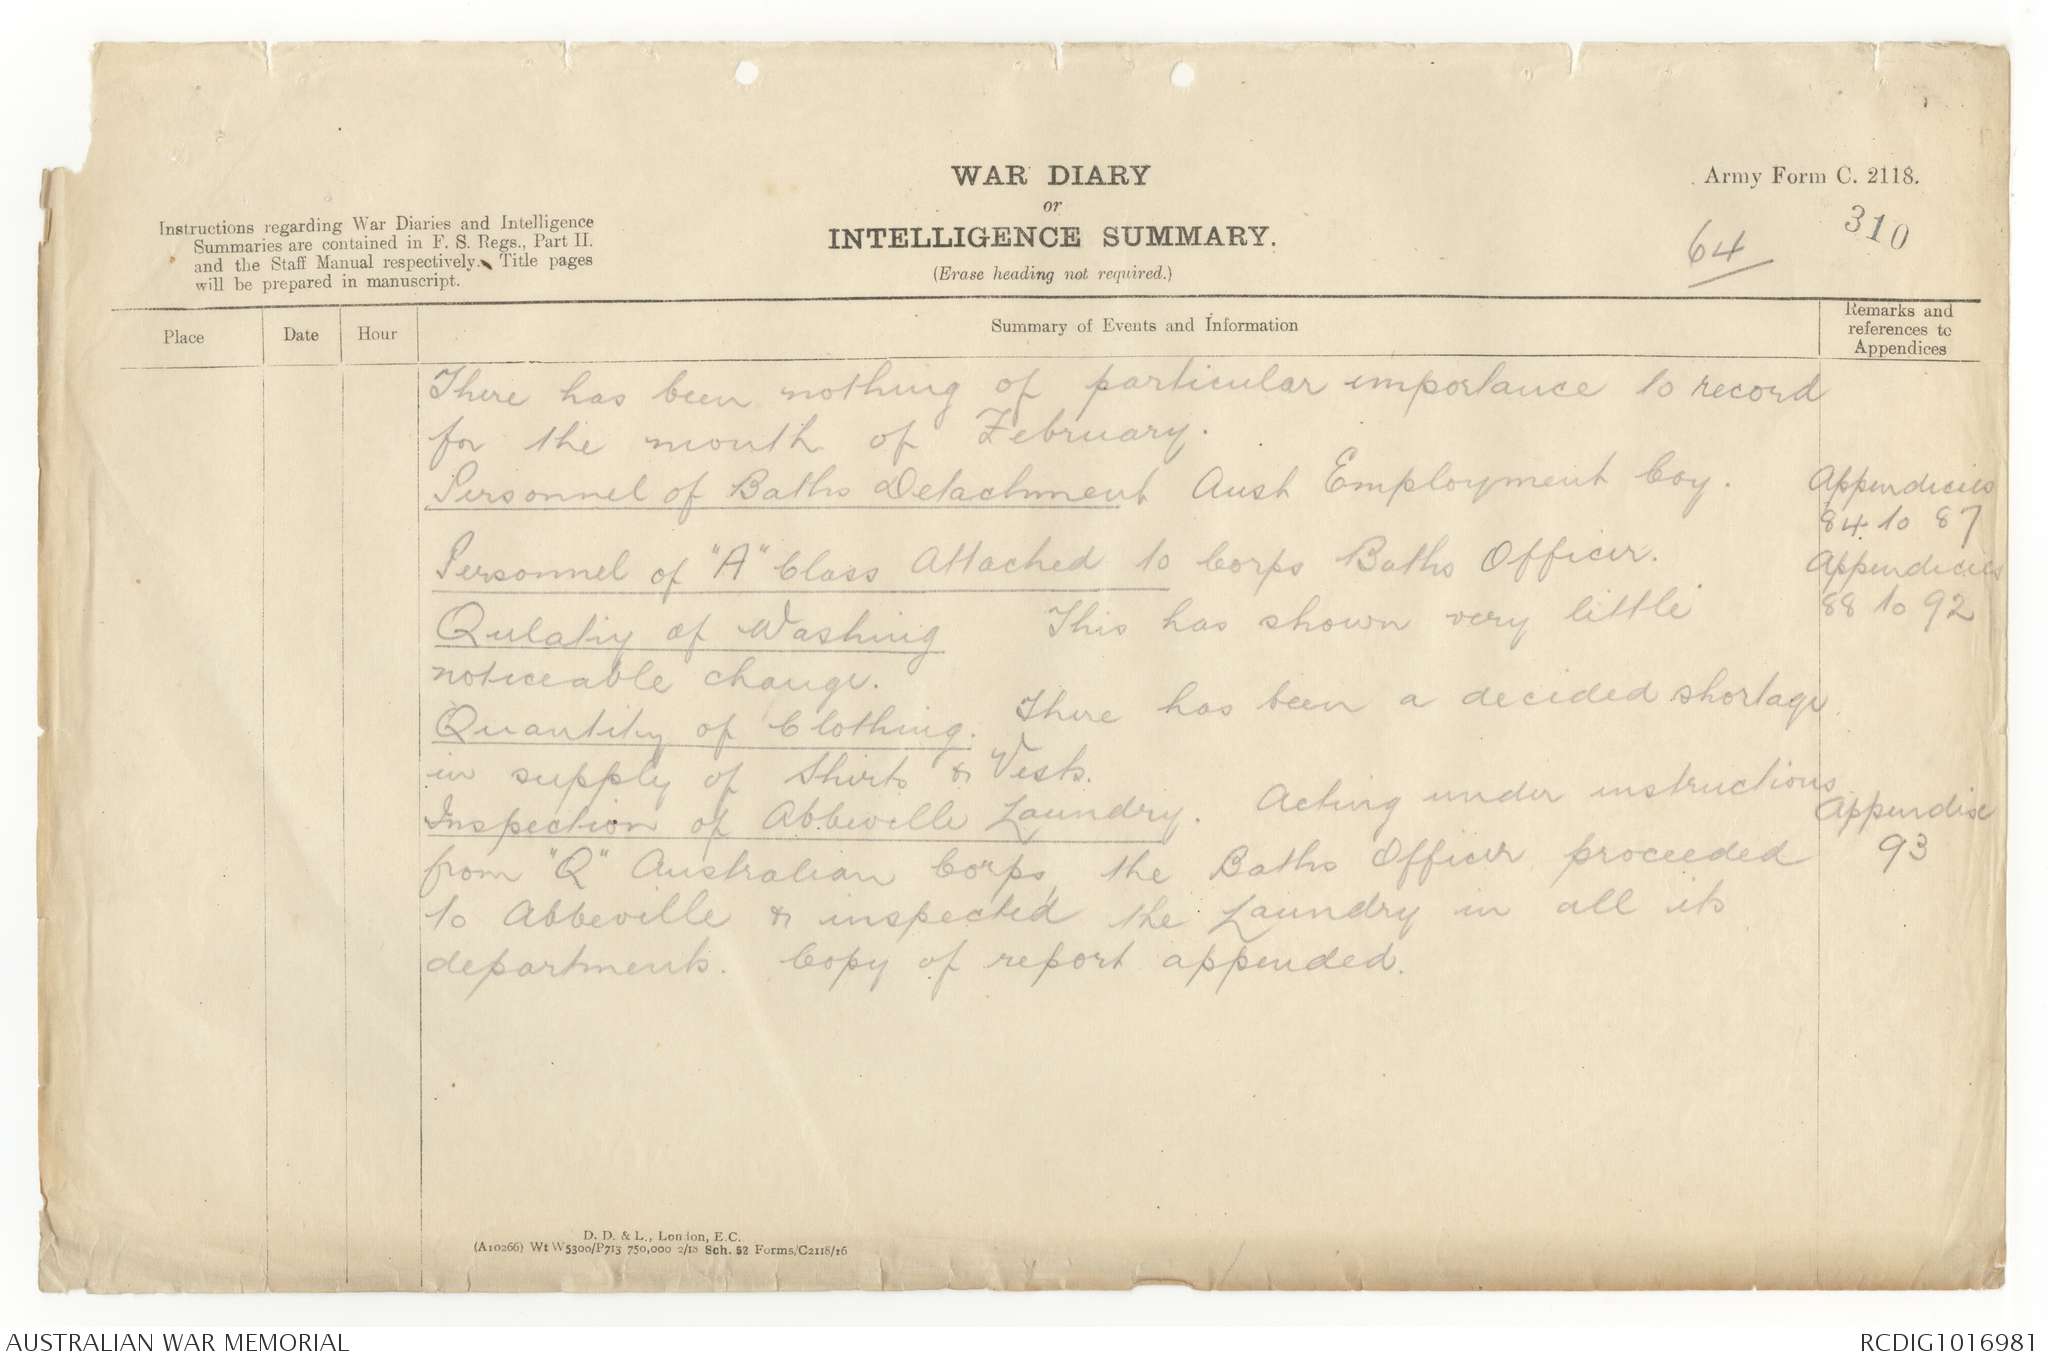 WAR DIARY
or
INTELLIGENCE SUMMARY.
(Erase heading not required.)
Army Form C. 2118.
64
310
Instructions regarding War Diaries and Intelligence
Summaries are contained in F. S. Regs., Part II.
and the Staff Manual respectively. Title pages
will be prepared in manuscript.
Place
Date
Hour
Summary of Events and Information
Remarks and
references to
Appendices
There has been nothing of particular importance to record
for the month of February.
Personnel of Baths Detachment Aust Employment Coy.
Appendicies
84 to 87
Personnel of "A" Class Attached to Corps Baths Officer.
Appendicies
88 to 92
Qulatiy of Washing This has shown very little
noticeable change.
Quantity of Clothing. There has been a decided shortage
in supply of Shirts & Vests.
Inspection of Abbeville Laundry. Acting under instructions
Appendix
93
from "Q" Australian Corps, the Baths Officer proceeded
to Abbeville & inspected the Laundry in all its
departments. Copy of report appended.
D. D. & L., London, E.C.
(A10266) Wt W5300/P713 750,000 2/18 Sch. 52 Forms/C2118/16
AUSTRALIAN WAR MEMORIAL
RCDIG1016981